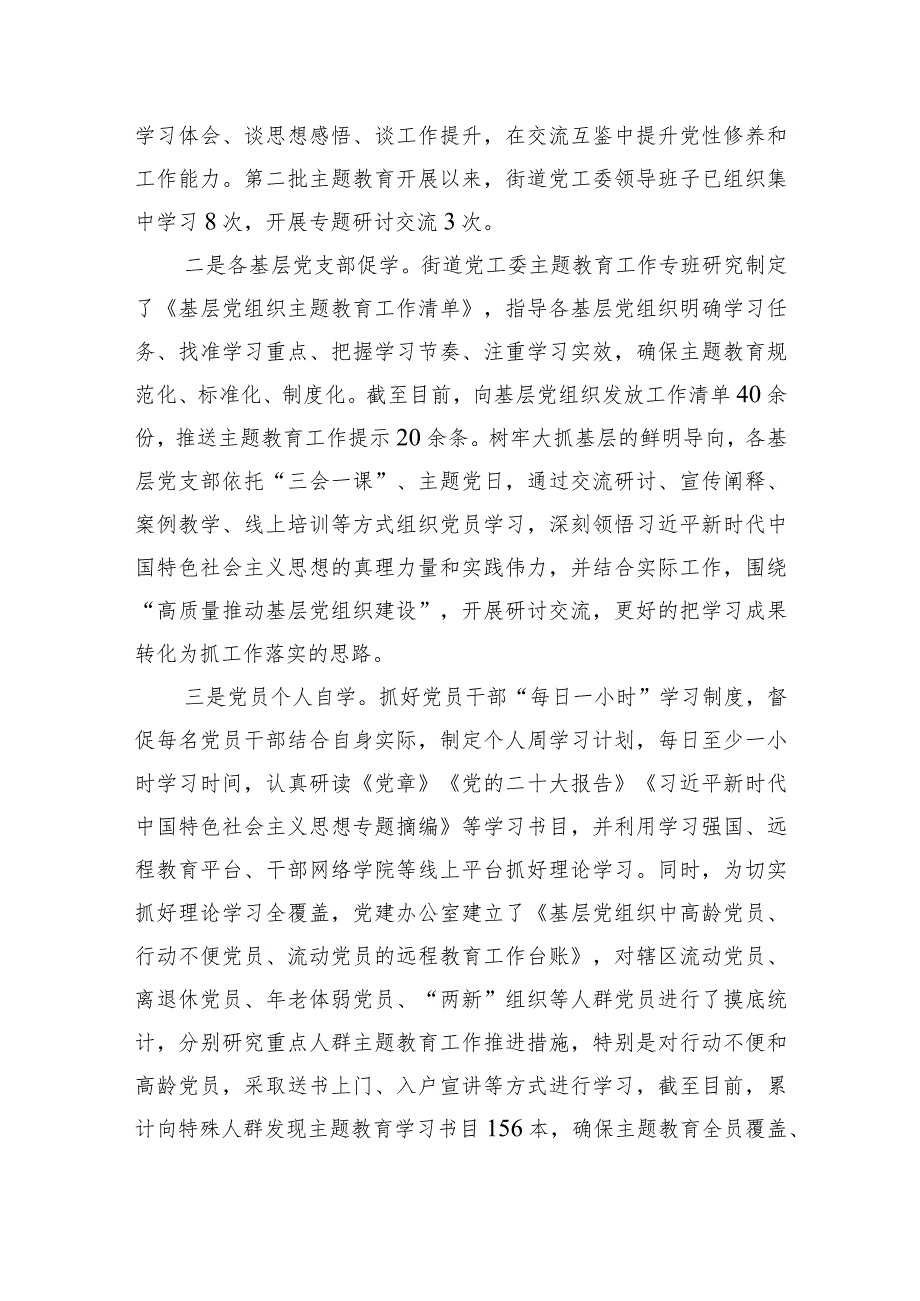 学习体会、谈思想感悟、谈工作提升，在交流互鉴中提升党性修养和
工作能力。第二批主题教育开展以来，街道党工委领导班子已组织集
中学习 8 次，开展专题研讨交流 3 次。
二是各基层党支部促学。街道党工委主题教育工作专班研究制定
了《基层党组织主题教育工作清单》，指导各基层党组织明确学习任
务、找准学习重点、把握学习节奏、注重学习实效，确保主题教育规
范化、标准化、制度化。截至目前，向基层党组织发放工作清单 40 余
份，推送主题教育工作提示 20 余条。树牢大抓基层的鲜明导向，各基
层党支部依托“三会一课”、主题党日，通过交流研讨、宣传阐释、
案例教学、线上培训等方式组织党员学习，深刻领悟习近平新时代中
国特色社会主义思想的真理力量和实践伟力，并结合实际工作，围绕
“高质量推动基层党组织建设”，开展研讨交流，更好的把学习成果
转化为抓工作落实的思路。
三是党员个人自学。抓好党员干部“每日一小时”学习制度，督
促每名党员干部结合自身实际，制定个人周学习计划，每日至少一小
时学习时间，认真研读《党章》《党的二十大报告》《习近平新时代
中国特色社会主义思想专题摘编》等学习书目，并利用学习强国、远
程教育平台、干部网络学院等线上平台抓好理论学习。同时，为切实
抓好理论学习全覆盖，党建办公室建立了《基层党组织中高龄党员、
行动不便党员、流动党员的远程教育工作台账》，对辖区流动党员、
离退休党员、年老体弱党员、“两新”组织等人群党员进行了摸底统
计，分别研究重点人群主题教育工作推进措施，特别是对行动不便和
高龄党员，采取送书上门、入户宣讲等方式进行学习，截至目前，累
计向特殊人群发现主题教育学习书目 156 本，确保主题教育全员覆盖、